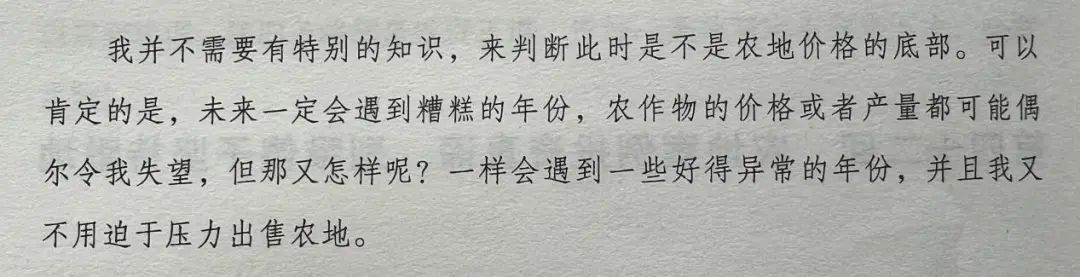 我并不需要有特别的知识，来判断此时是不是农地价格的底部。可以
肯定的是，未来一定会遇到糟糕的年份，农作物的价格或者产量都可能偶
尔令我失望，但那又怎样呢？一样会遇到一些好得异常的年份，并且我又
不用迫于压力出售农地。